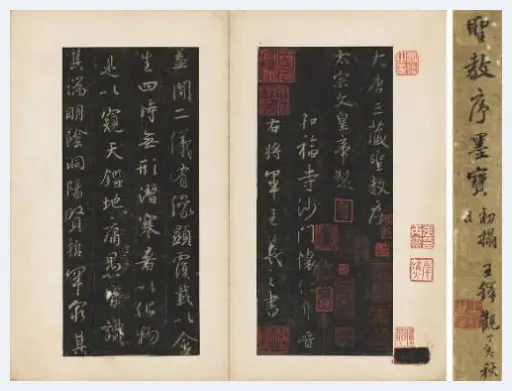 聖教序墨寶
初搨
王鐸觀
丁亥秋
大唐三藏聖教序
太宗文皇帝製
弘福寺沙門懷仁集晉
右將軍王羲之書
蓋聞二儀有像顯覆載以含
生四時無形潛寒暑以化物
是以窺天鑑地庸愚皆識
其端明陰洞陽賢哲罕窮其